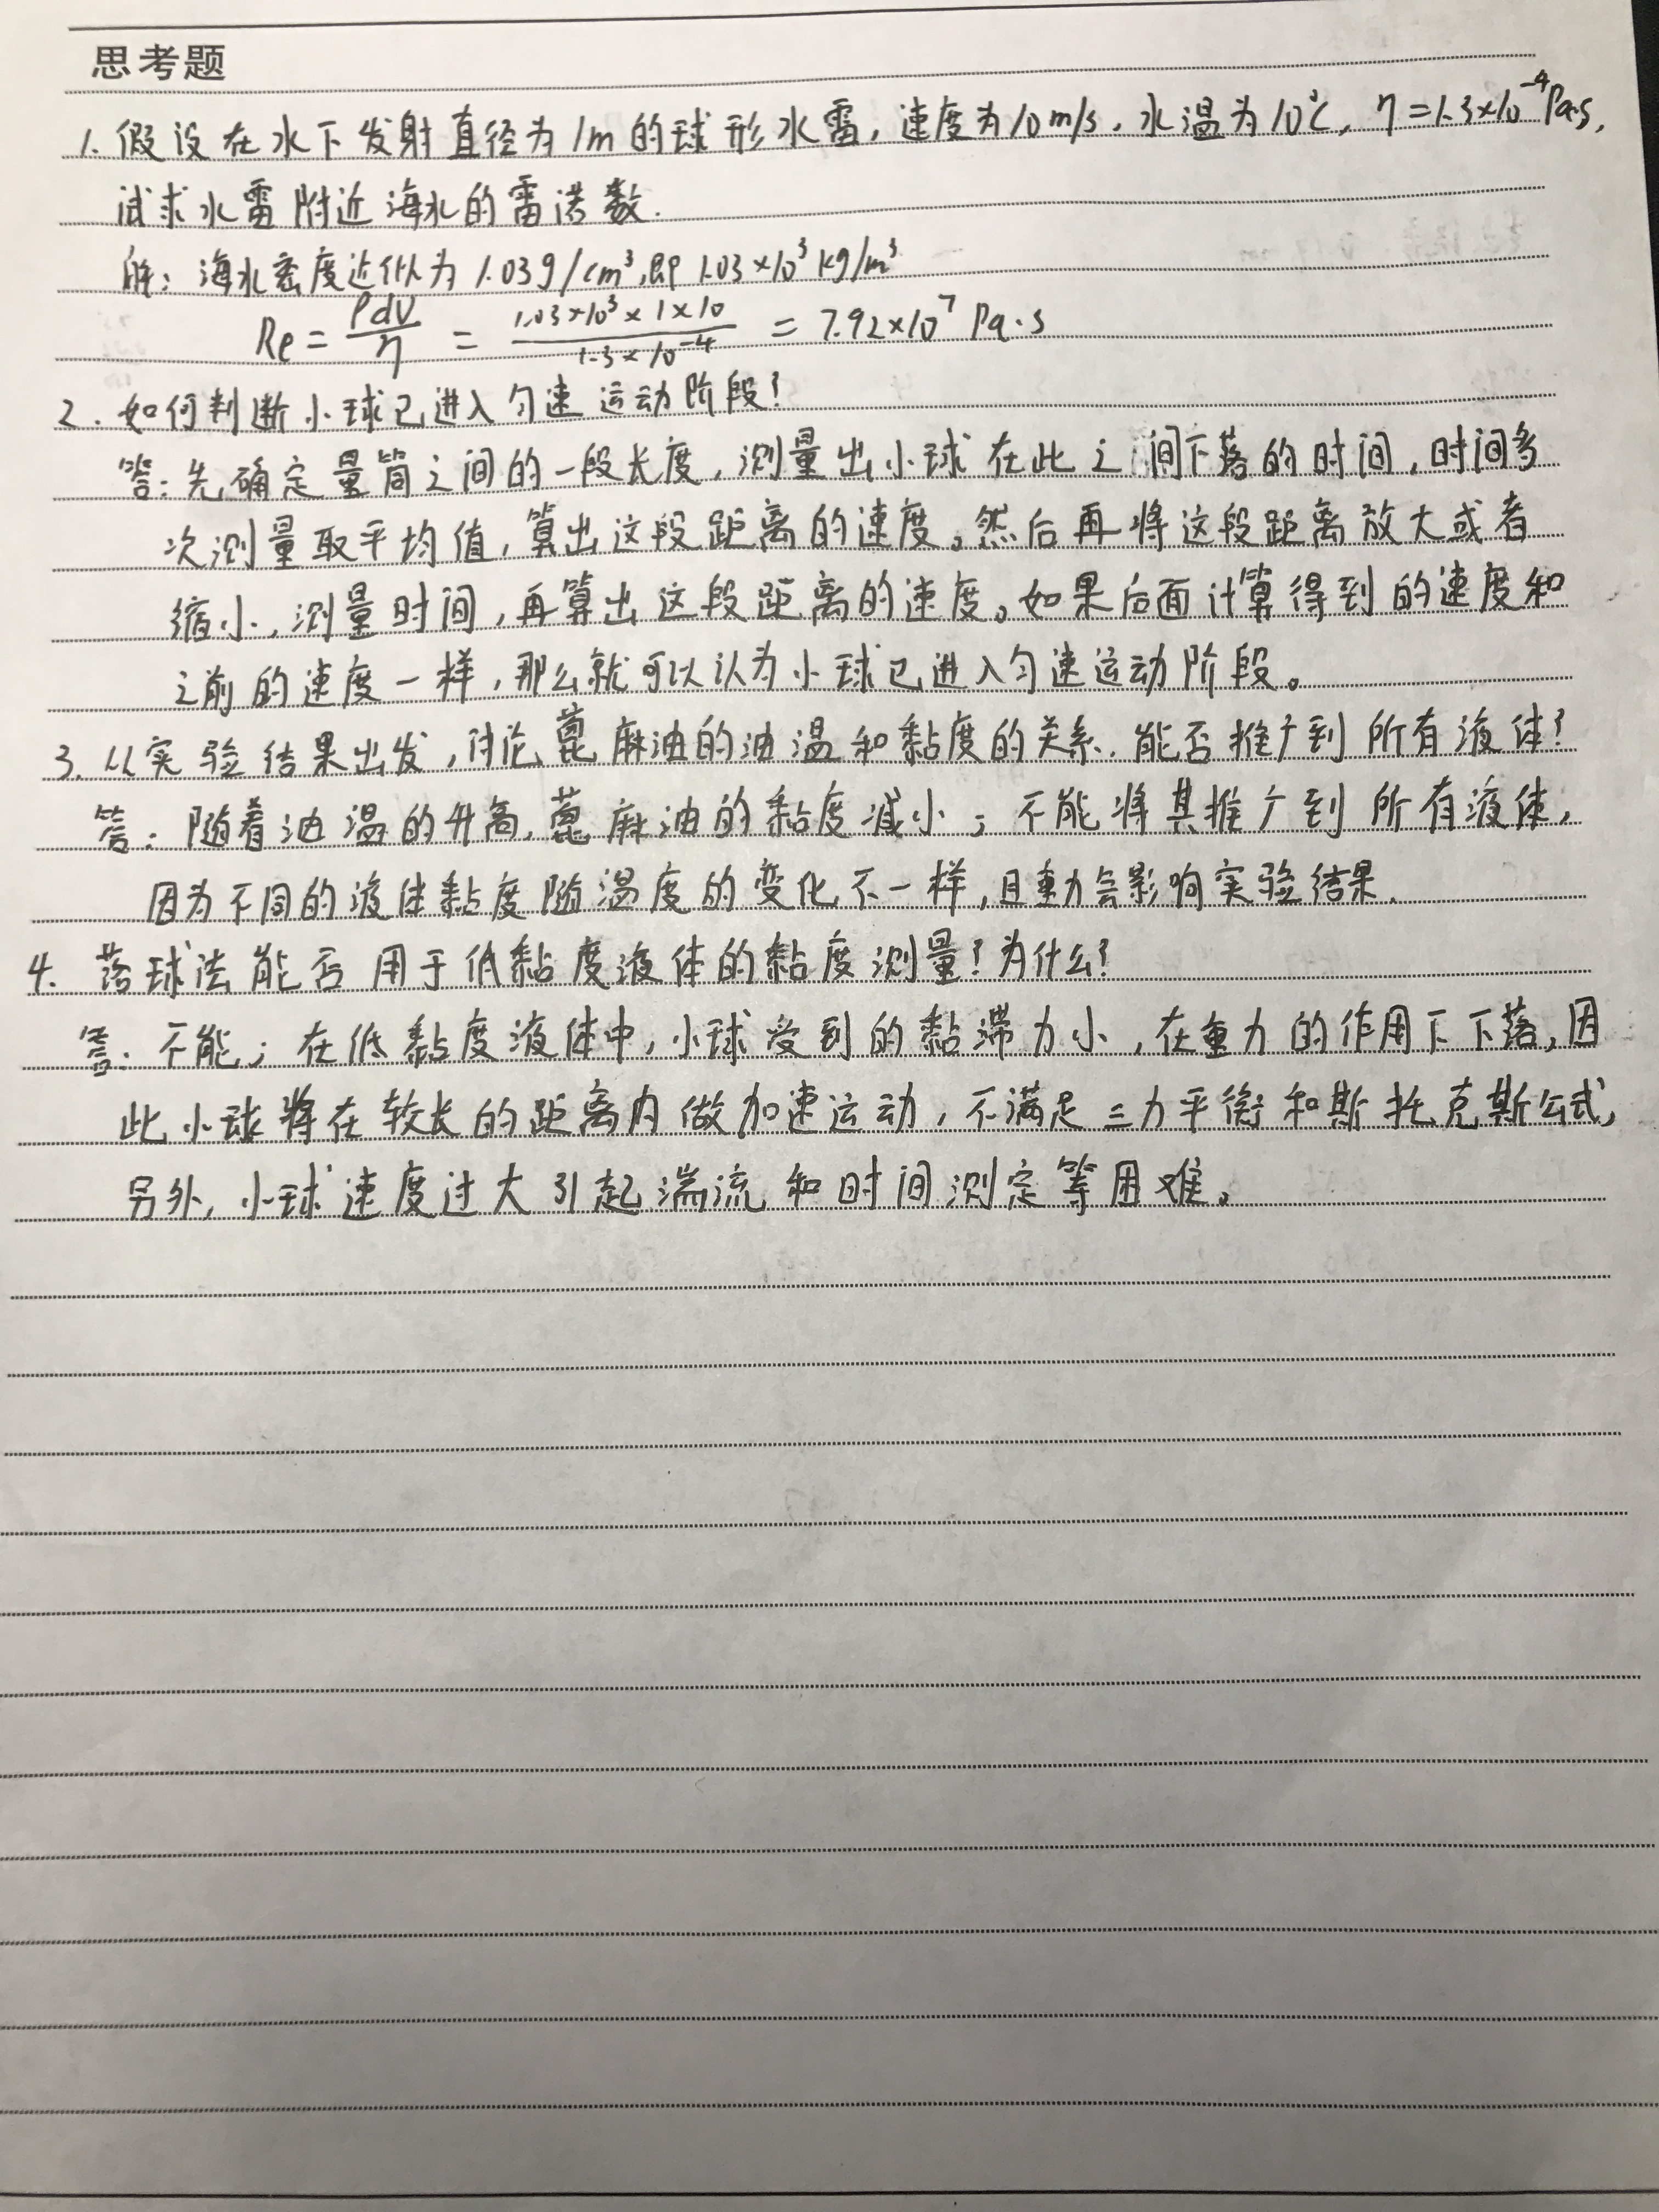 思考题
1. 假设在水下发射直径为1m的球形水雷,速度为10m/s,水温为10℃, η=1.3×10⁻⁴Pa·s,
试求水雷附近海水的雷诺数.
解: 海水密度近似为 1.03g/cm³,即 1.03×10³kg/m³
Re = ρdv/η = 1.03×10³×1×10/1.3×10⁻⁴ = 7.92×10⁷ Pa·s
2. 如何判断小球已进入匀速运动阶段?
答: 先确定量筒之间的一段长度,测量出小球在此之间下落的时间,时间多
次测量取平均值,算出这段距离的速度。然后再将这段距离放大或者
缩小,测量时间,再算出这段距离的速度。如果后面计算得到的速度和
之前的速度一样,那么就可以认为小球已进入匀速运动阶段。
3. 从实验结果出发,讨论蓖麻油的油温和黏度的关系.能否推广到所有液体?
答: 随着油温的升高,蓖麻油的黏度减小;不能将其推广到所有液体,
因为不同的液体黏度随温度的变化不一样,且重力会影响实验结果.
4. 落球法能否用于低黏度液体的黏度测量?为什么?
答: 不能;在低黏度液体中,小球受到的黏滞力小,在重力的作用下下落,因
此小球将在较长的距离内做加速运动,不满足三力平衡和斯托克斯公式,
另外,小球速度过大引起湍流和时间测定等困难。